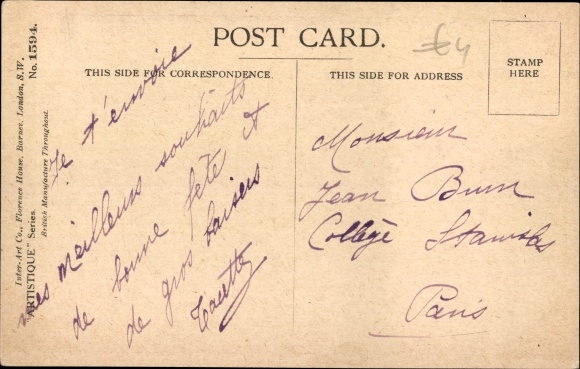 POST CARD.
THIS SIDE FOR CORRESPONDENCE.
THIS SIDE FOR ADDRESS
STAMP
HERE
Inter-Art Co., Florence House, Barnes, London, S.W.
"ARTISTIQUE" Series. No. 1594.
British Manufacture Throughout.
Je t'envoie
mes meilleurs souhaits
de bonne fête et
de gros baisers
Monsieur
Jean
Collège Stanislas
Paris